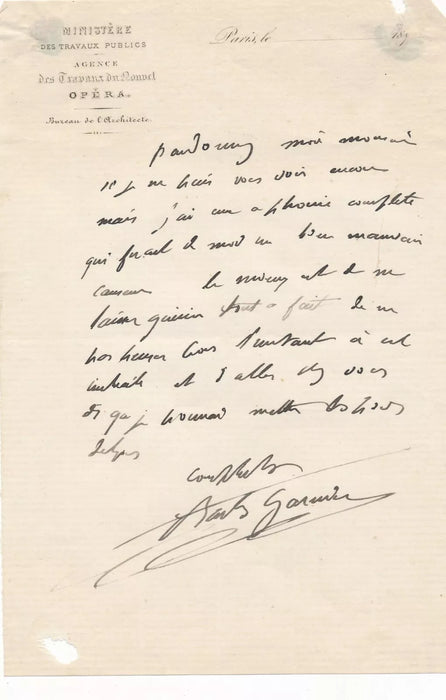 MINISTÈRE
DES TRAVAUX PUBLICS
AGENCE
des Travaux du Nouvel
OPÉRA.
Bureau de l'Architecte.
Paris, le 18
pardonnez moi monsieur
si je ne puis vous voir encore
mais j'ai une aphonie complète
qui ferait de moi un bien mauvais
causeur le mieux est de me
laisser guérir tout a fait de ne
pas penser l'instant à cet
et d'aller chez vous
dès que je pourrai mettre les pieds
dehors
Charles Garnier